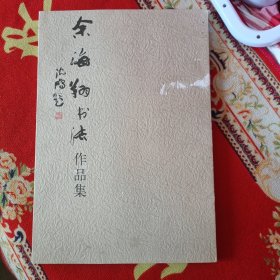 余海翔书法
作品集
沈鹏题